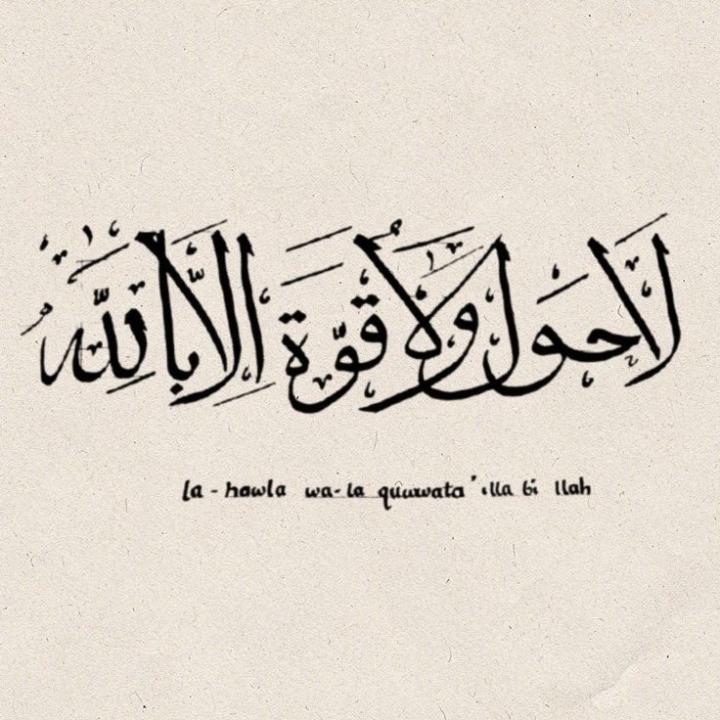 لا حول ولا قوّة إلّا بالله
la - hawla wa-la quuwata 'illa bi llah